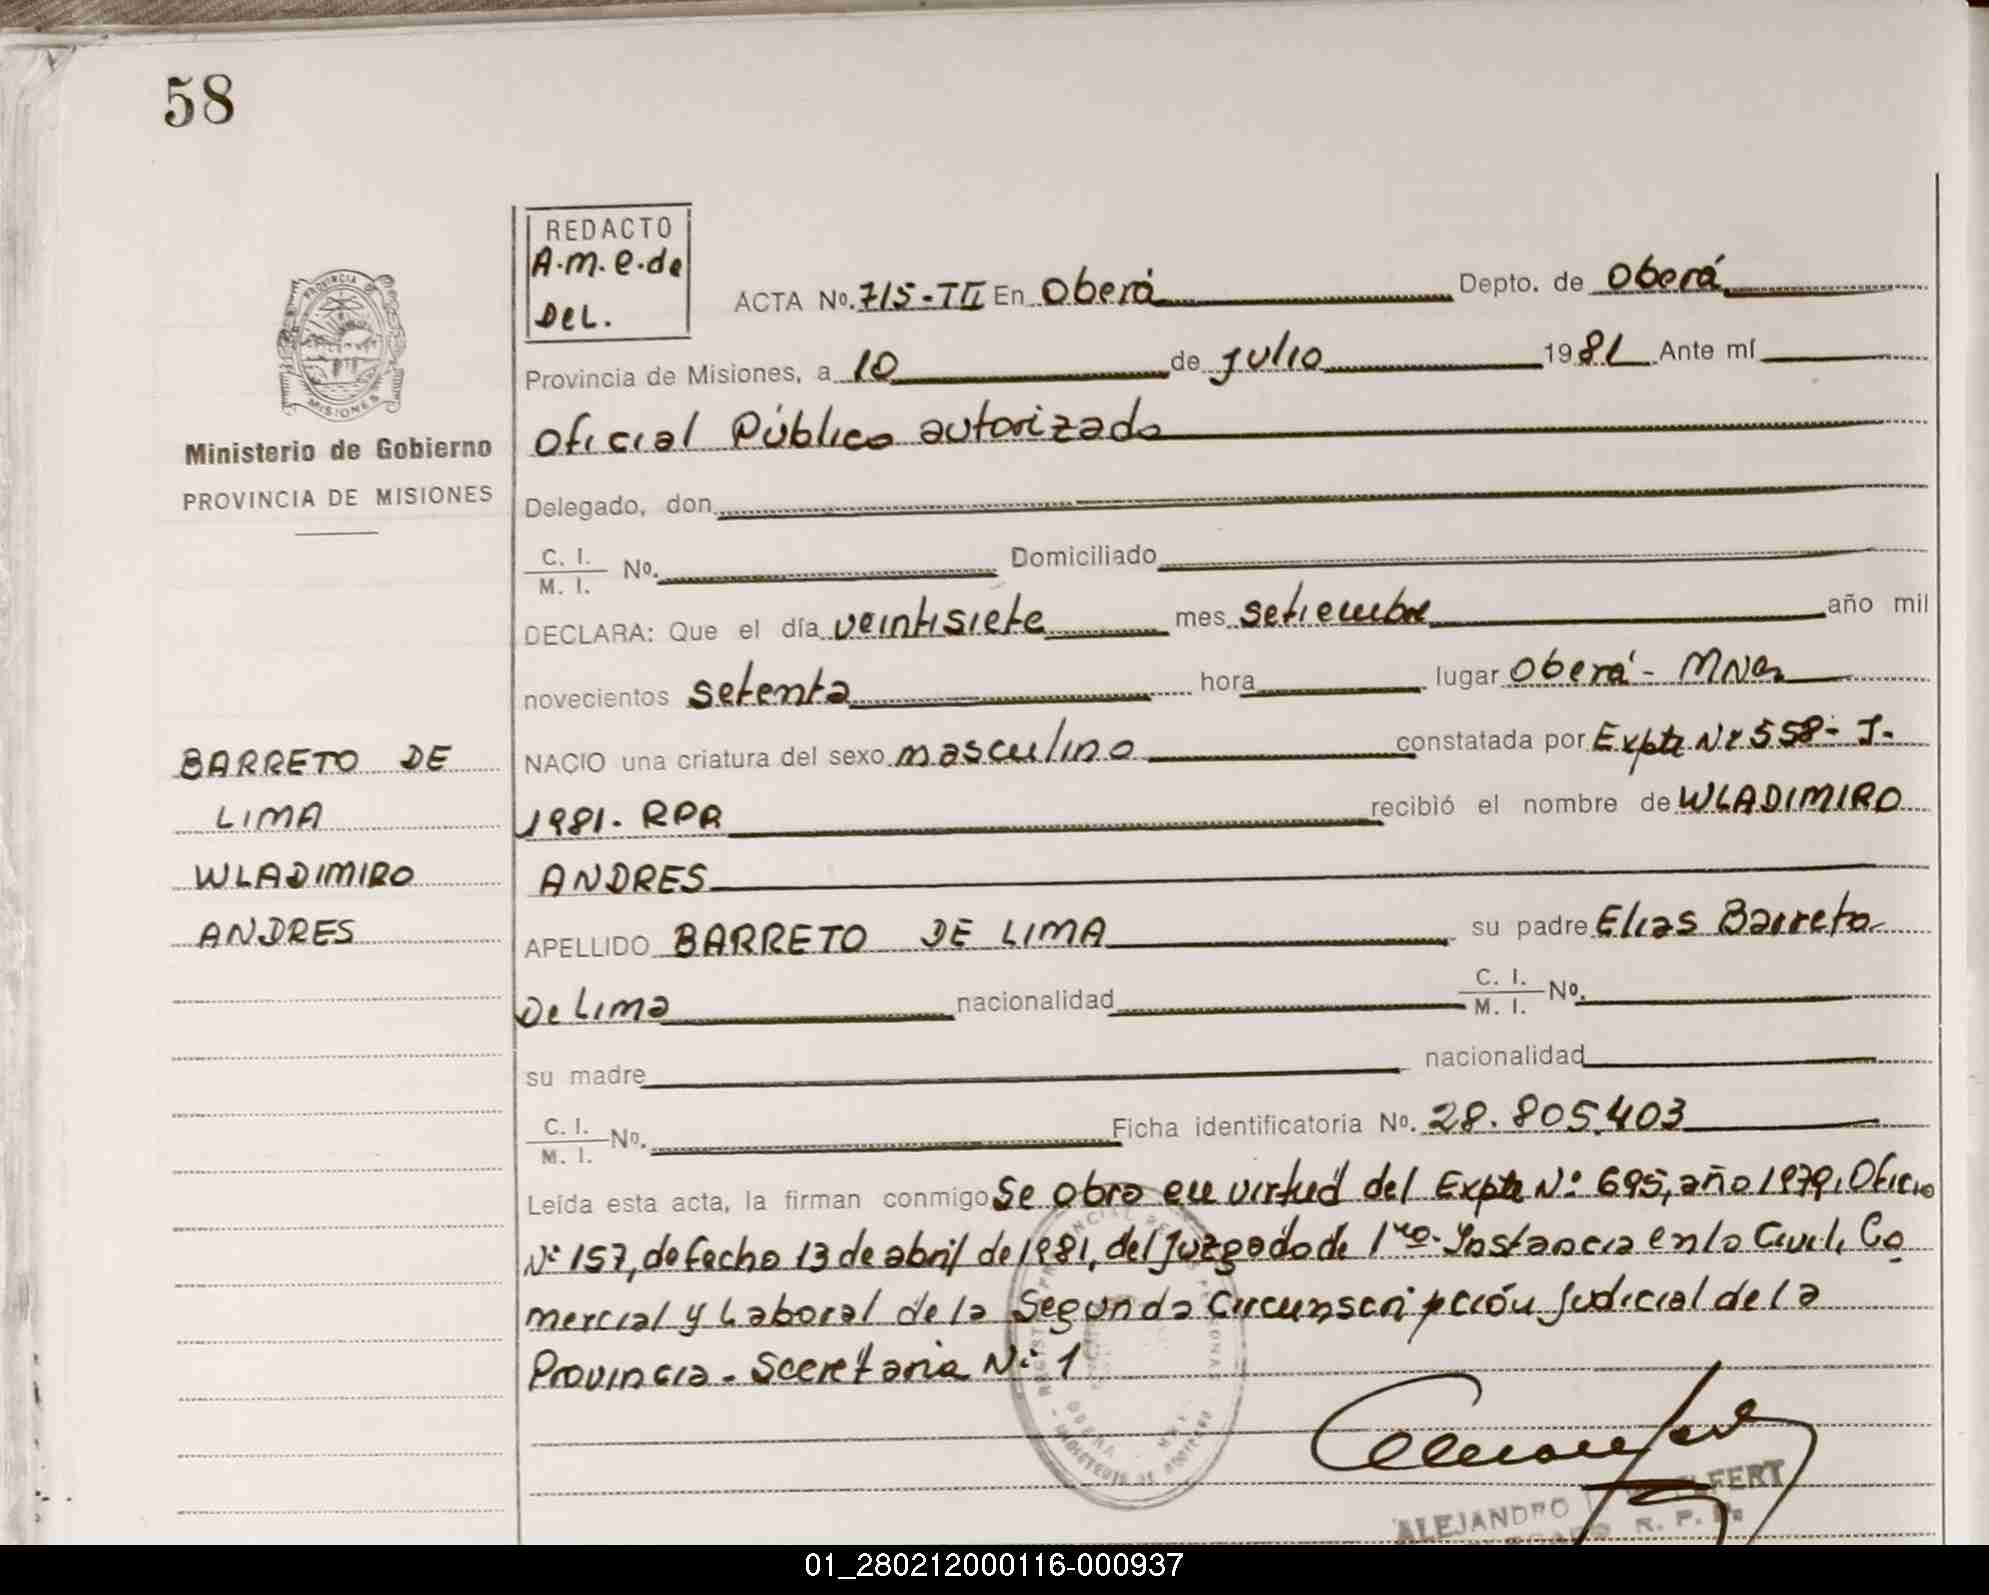 58
REDACTO
A.m.e.de
DeL.
ACTA No. 715-TII En Oberá Depto. de Oberá
Provincia de Misiones, a 10 de julio 1981 Ante mí
Oficial Público autorizado
Delegado, don
C. I.
M. I. No. Domiciliado
DECLARA: Que el día veintisiete mes setiembre año mil
novecientos setenta hora lugar Oberá - MNes
NACIO una criatura del sexo masculino constatada por Expte Nº 558- J-
1981. RPR recibió el nombre de WLADIMIRO
ANDRES
APELLIDO BARRETO DE LIMA su padre Elias Barreto
De Lima nacionalidad C. I.
M. I. No.
su madre nacionalidad
C. I.
M. I. No. Ficha identificatoria No. 28.805.403
Leída esta acta, la firman conmigo Se obra en virtud del Expte Nº 695, año 1979, Oficio
Nº 157, de fecha 13 de abril de 1981, del Juzgado de 1ra. Instancia en lo Civil, Co
mercial y Laboral de la Segunda Circunscripción Judicial de la
Provincia - Secretaria Nº 1
PROVINCIA DE
MISIONES
Ministerio de Gobierno
PROVINCIA DE MISIONES
BARRETO DE
LIMA
WLADIMIRO
ANDRES
OBERA
ALEJANDRO
R. P.
01_280212000116-000937